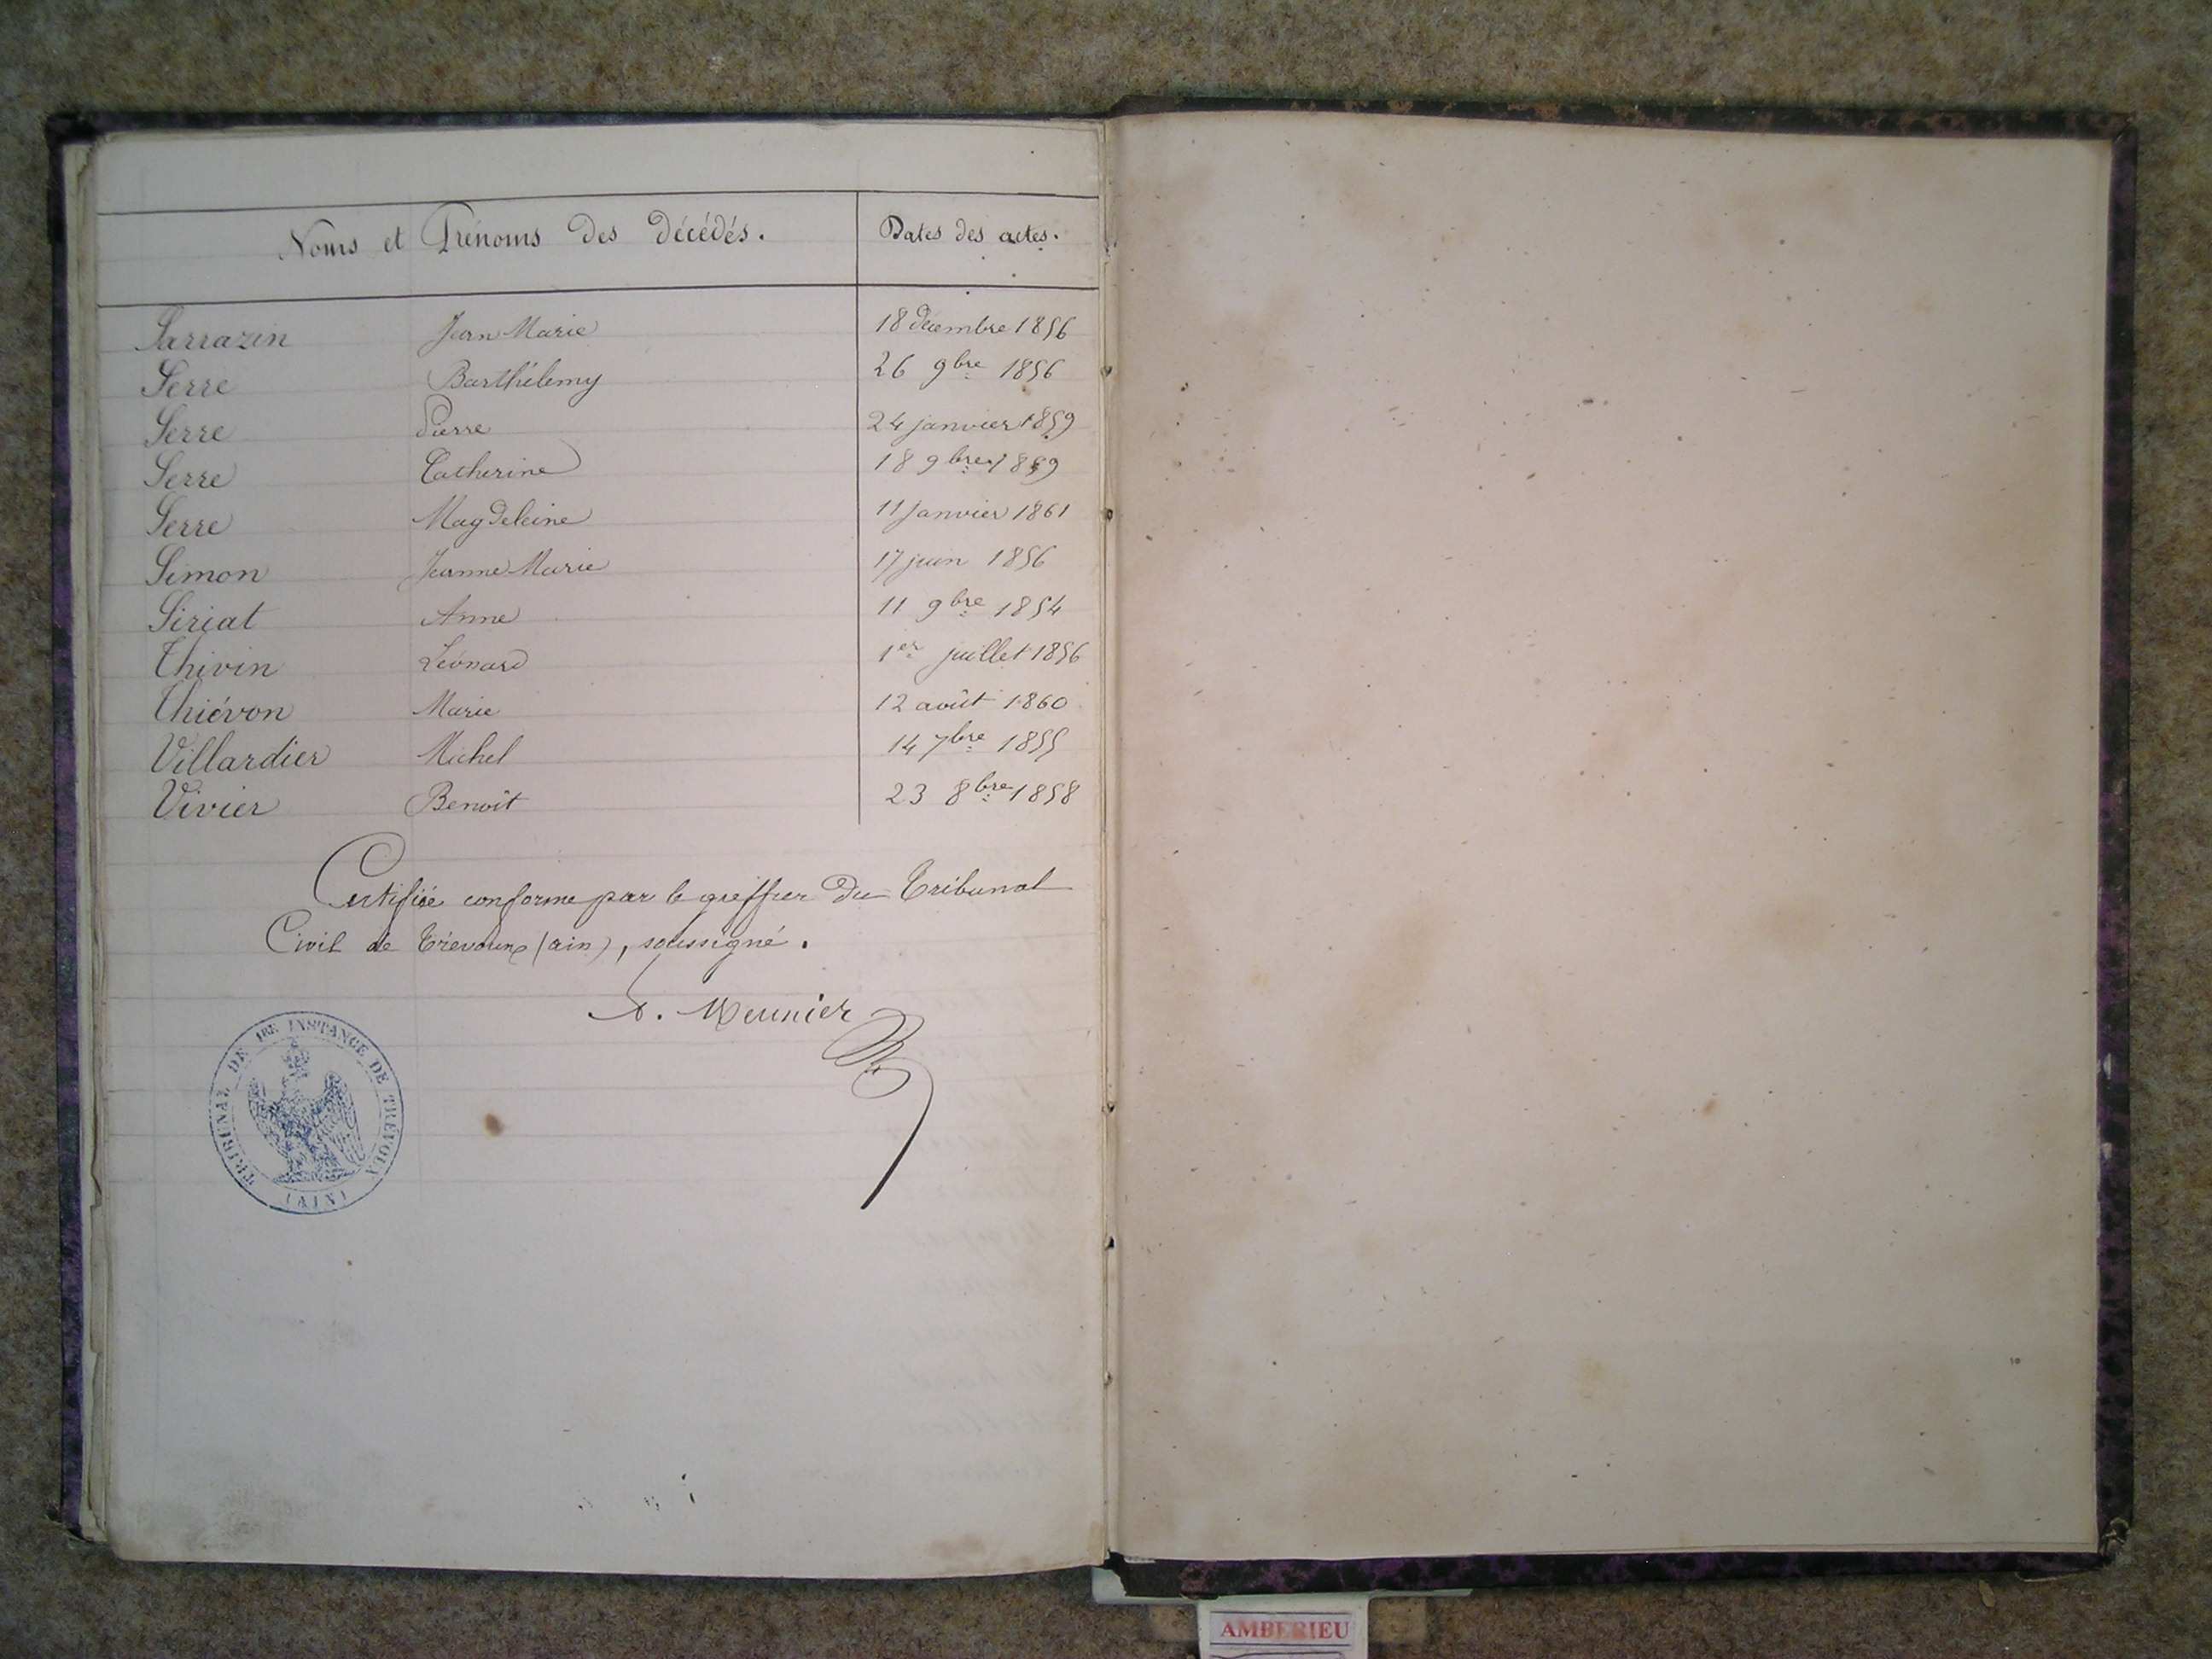 Noms et Prénoms des décédés. Dates des actes.
Sarrazin Jean Marie 18 décembre 1856
Serre Barthélemy 26 9bre 1856
Serre Pierre 24 janvier 1859
Serre Catherine 18 9bre 1859
Serre Magdeleine 11 Janvier 1861
Simon Jeanne Marie 17 juin 1856
Siriat Anne 11 9bre 1854
Thivin Léonard 1er juillet 1856
Thiévon Marie 12 août 1860
Villardier Michel 14 7bre 1855
Vivier Benoît 23 8bre 1858
Certifiée conforme par le greffier du Tribunal
Civil de Trévoux (ain), soussigné.
A. Meunier
TRIBUNAL DE 1RE INSTANCE DE TRÉVOUX
(AIN)
AMBERIEU